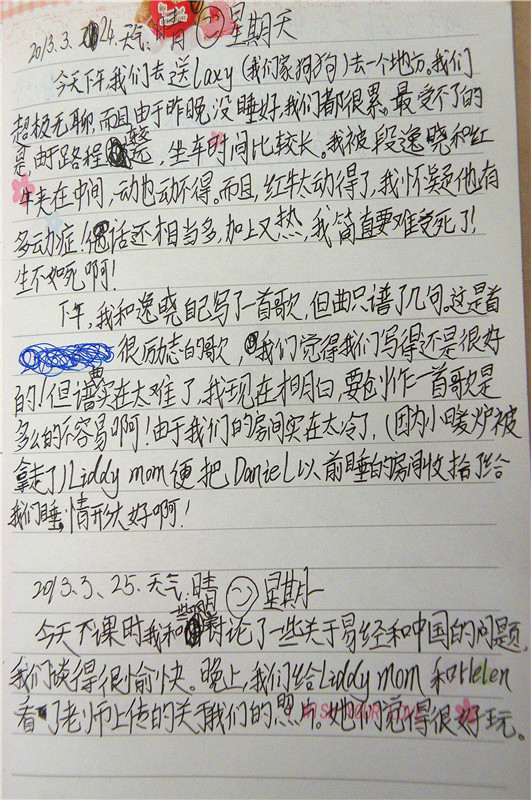 2013.3.24.天气:晴 星期天
今天下午我们去送laxy(我们家狗狗)去一个地方。我们
超极无聊,而且由于昨晚没睡好,我们都很累。最受不了的
是,由于路程 ,坐车时间比较长。我被段逸晓和红
牛夹在中间,动也动不得。而且,红牛太动得了,我怀疑他有
多动症!他话还相当多,加上又热,我简直要难受死了!
生不如死啊!
下午,我和逸晓自己写了一首歌,但曲只谱了几句。这是首
很励志的歌,我们觉得我们写得还是很好
的!但谱曲实在太难了,我现在才明白,要创作一首歌是
多么的不容易啊!由于我们的房间实在太冷了,(因为小暖炉被
拿走了)Liddy mom便把Daniel以前睡的房间收拾了给
我们睡,情形大好啊!
2013.3.25.天气:晴 星期一
今天下课时我和 讨论了一些关于易经和中国的问题,
我们谈得很愉快。晚上,我们给Liddy mom 和Helen
看了老师上传的关于我们的照片。她们觉得很好玩。